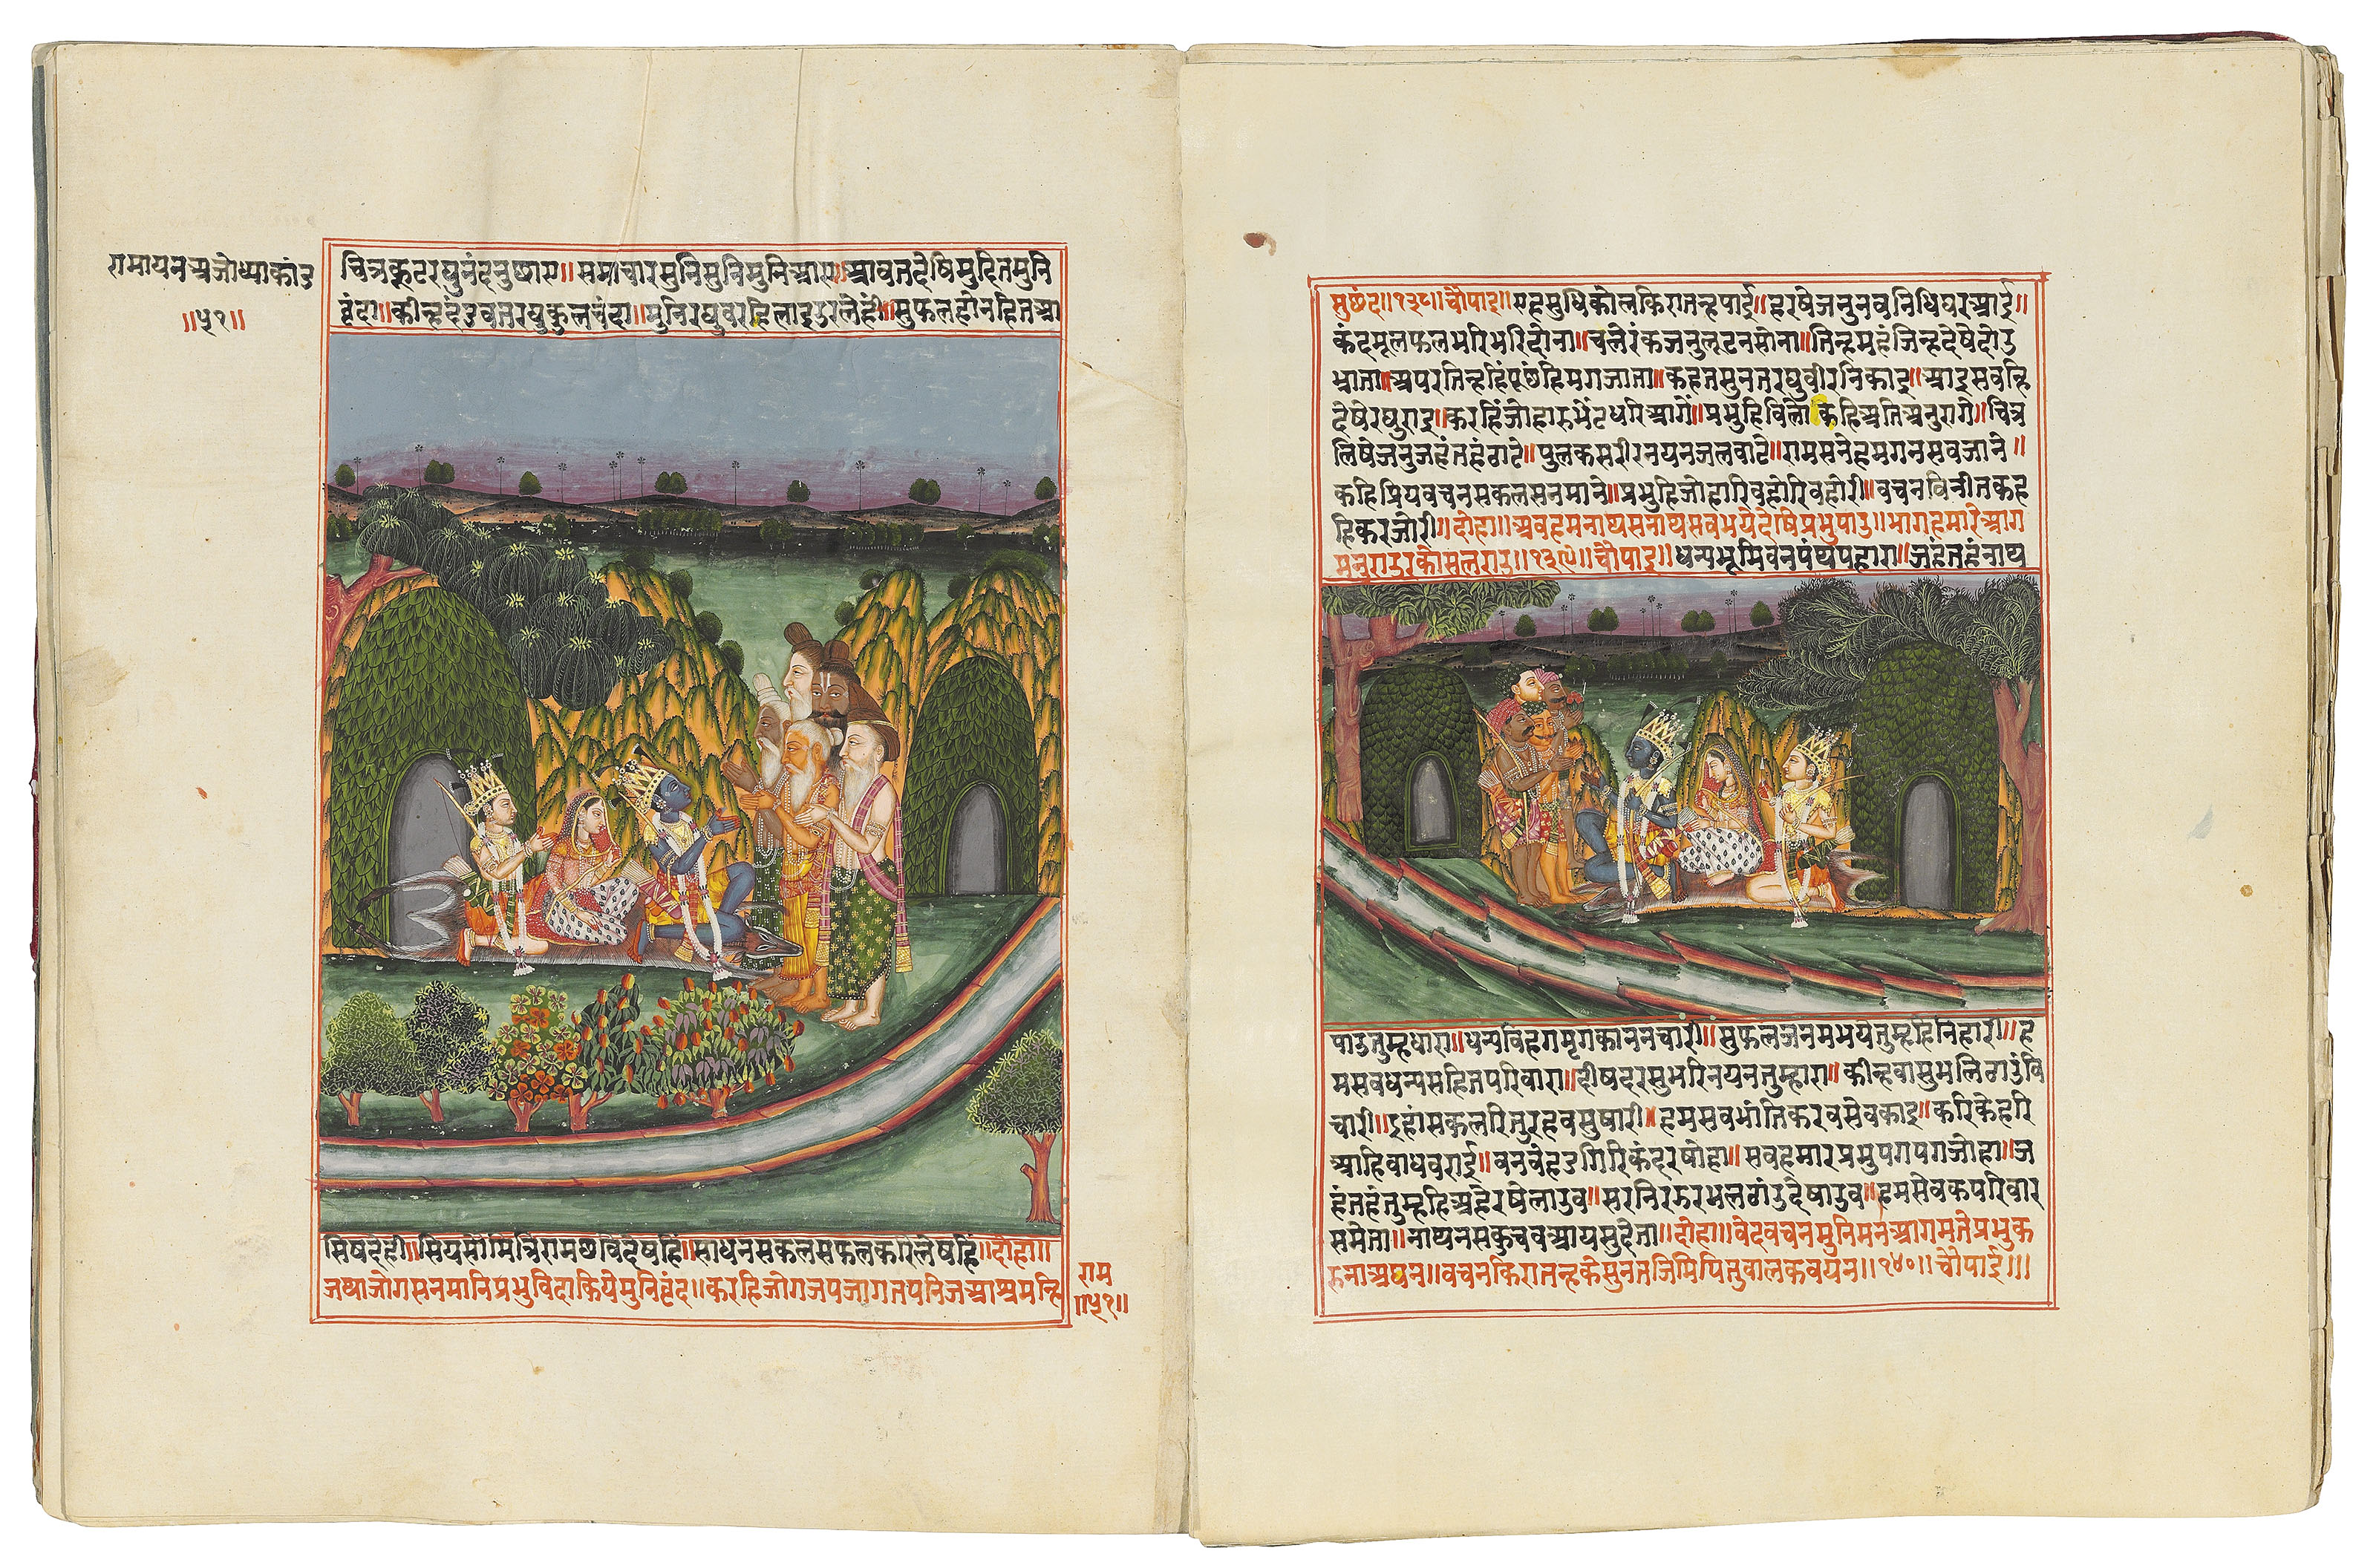 रामायनअजोध्याकांड
॥५१॥
चित्रकूटरघुनंदनुछाए॥समाचारसुनिसुनिमुनिआए॥आवतदेषिमुदितमुनि
बृंदा॥कीन्हदंडवतरघुकुलचंदा॥मुनिरघुबरहिलाइउरलेहीं॥सुफलहोनहितआ
सिषदेहीं॥सियसौमित्रिरामछबिदेषहिं॥साधनसकलसफलकरिलेषहिं॥दोहा॥
जथाजोगसनमानिप्रभुबिदाकियेमुनिबृंद॥करहिजोगजपजागतपनिजआश्रमन्हि
राम
॥५१॥
सुछंद॥१३८॥चौपाइ॥यहसुधिकोलकिरातन्हपाई॥हरषेजनुनवनिधिघरआई॥
कंदमूलफलभरिभरिदोना॥चलेरंकजनुलूटनसोना॥तिन्हमहंजिन्हदेषेदोउ
भ्राता॥अपरतिन्हहिंपूछहिमगजाता॥कहतसुनतरघुबीरनिकाइ॥आइसबन्हि
देषेरघुराइ॥करहिंजोहारुभेंटधरिआगें॥प्रभुहिबिलोकहिअतिअनुरागे॥चित्र
लिषेजनुजहंतहंठाढे॥पुलकसरीरनयनजलबाढे॥रामसनेहमगनसबजाने॥
कहिप्रियबचनसकलसनमाने॥प्रभुहिजोहारिबहोरिबहोरी॥बचनबिनीतकह
हिकरजोरी॥दोहा॥अबहमनाथसनाथसबभयेदेषिप्रभुपाउ॥भागहमारेआग
मनुराउरकोसलराउ॥१३९॥चौपाइ॥धन्यभूमिबनपंथपहारा॥जहंतहंनाथ
पाउतुम्हधारा॥धन्यबिहगमृगकाननचारी॥सुफलजनमभयेतुम्हहिनिहारी॥ह
मसबधन्यसहितपरिवारा॥दीषदरसुभरिनयनतुम्हारा॥कीन्हबासुभलिठाउंबि
चारी॥इहांसकलरितुरहबसुषारी॥हमसबभांतिकरबसेवकाइ॥करिकेहरि
अहिबाघबराई॥बनबेहडगिरिकंदरषोहा॥सबहमारप्रभुपगपगजोहा॥ज
हंतहंतुम्हहिअहेरषेलाउब॥सरनिरझरभलठाउंदेषाउब॥हमसेवकपरिवार
समेता॥नाथनसकुचबआयसुदेता॥दोहा॥बेदबचनमुनिमनअगमतेप्रभुक
रुनाअयन॥बचनकिरातन्हकेसुनतजिमिपितुबालकबयन॥१४०॥चौपाई॥